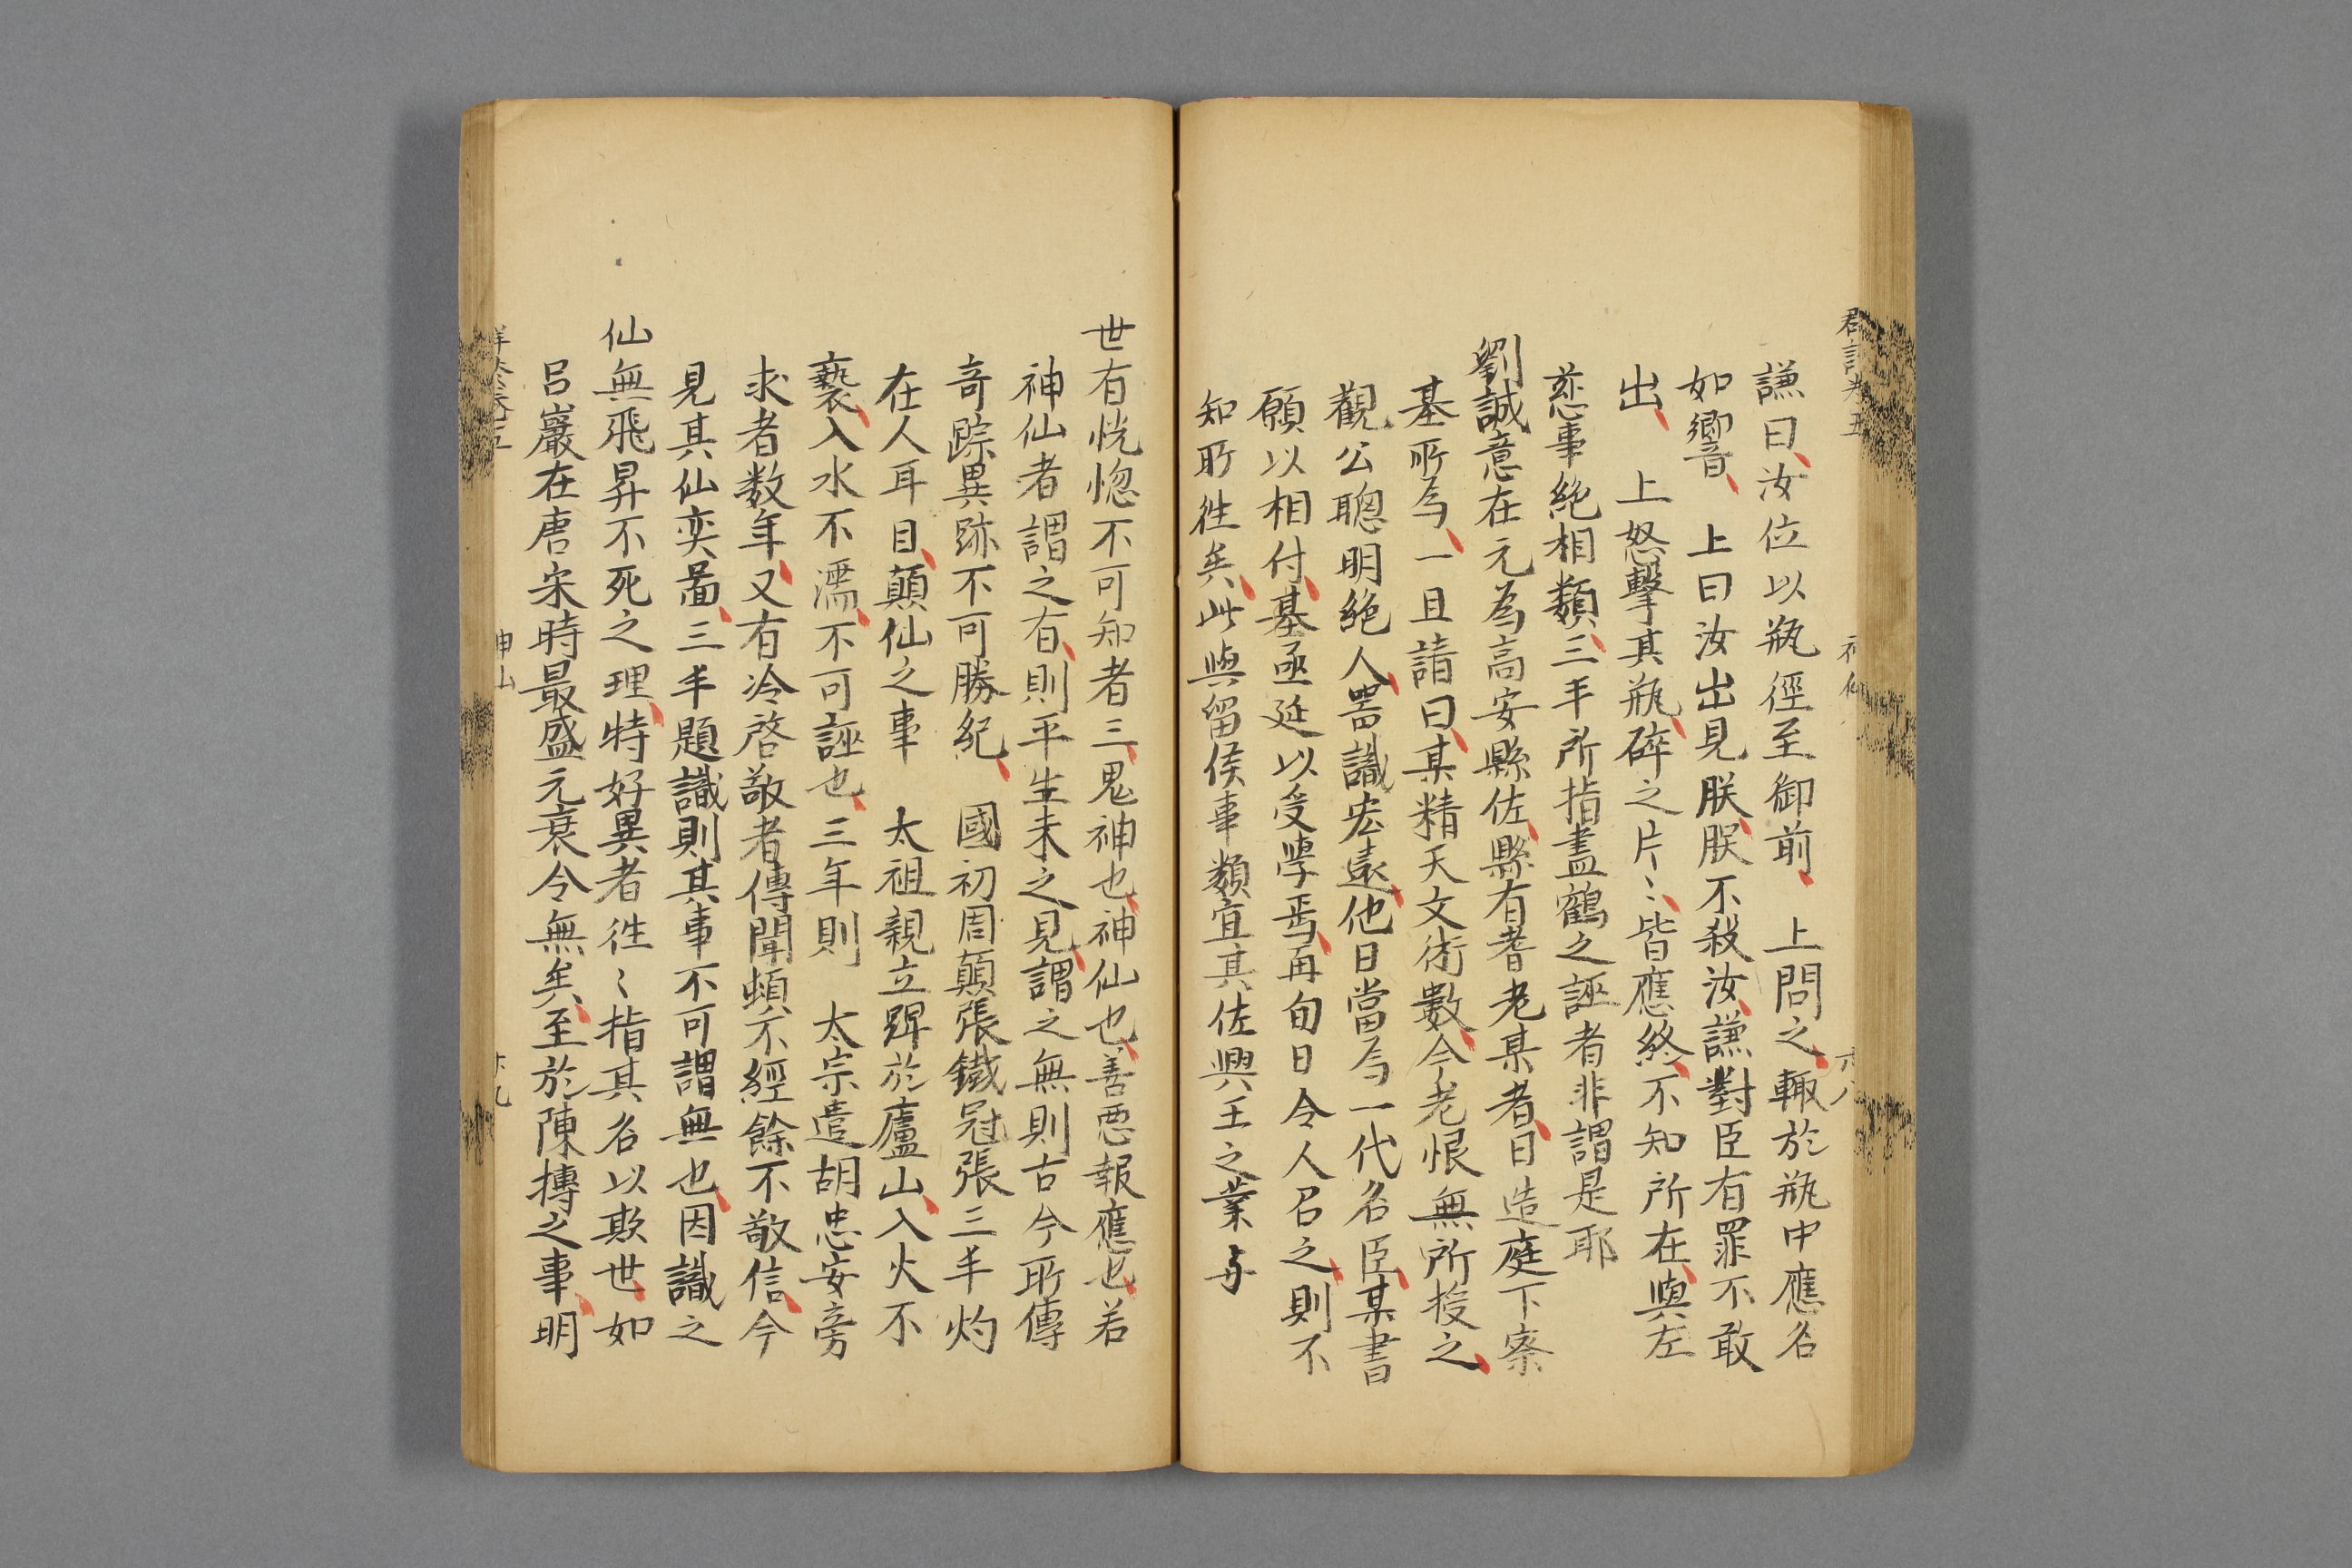 謙曰汝位以瓶徑至御前 上問之輙於瓶中應名
如響 上曰汝出見朕朕不殺汝謙對臣有罪不敢
出 上怒擊其瓶碎之片〻皆應終不知所在與左
慈事絶相類三丰所指畫鶴之誣者非謂是耶
劉誠意在元為高安縣佐縣有耆老某者日造庭下察
基所為一旦請曰某精天文術數今老恨無所授之
觀公聰明絶人器識宏遠他日當為一代名臣某書
願以相付基亟延以受學焉再旬日令人召之則不
知所徃矣此與留侯事類宜其佐興王之業与
世有恍惚不可知者三鬼神也神仙也善惡報應也若
神仙者謂之有則平生未之見謂之無則古今所傳
竒踪異跡不可勝紀 國初周顛張鐵冠張三丰灼
在人耳目顛仙之事 太祖親立碑於廬山入火不
爇入水不濡不可誣也三年則 太宗遣胡忠安旁
求者数年又有冷啓敬者傳聞頗不經餘不敬信今
見其仙奕圖三丰題識則其事不可謂無也因識之
仙無飛昇不死之理特好異者徃〻指其名以欺世如
吕巖在唐宋時最盛元衰今無矣至於陳摶之事明
神仙